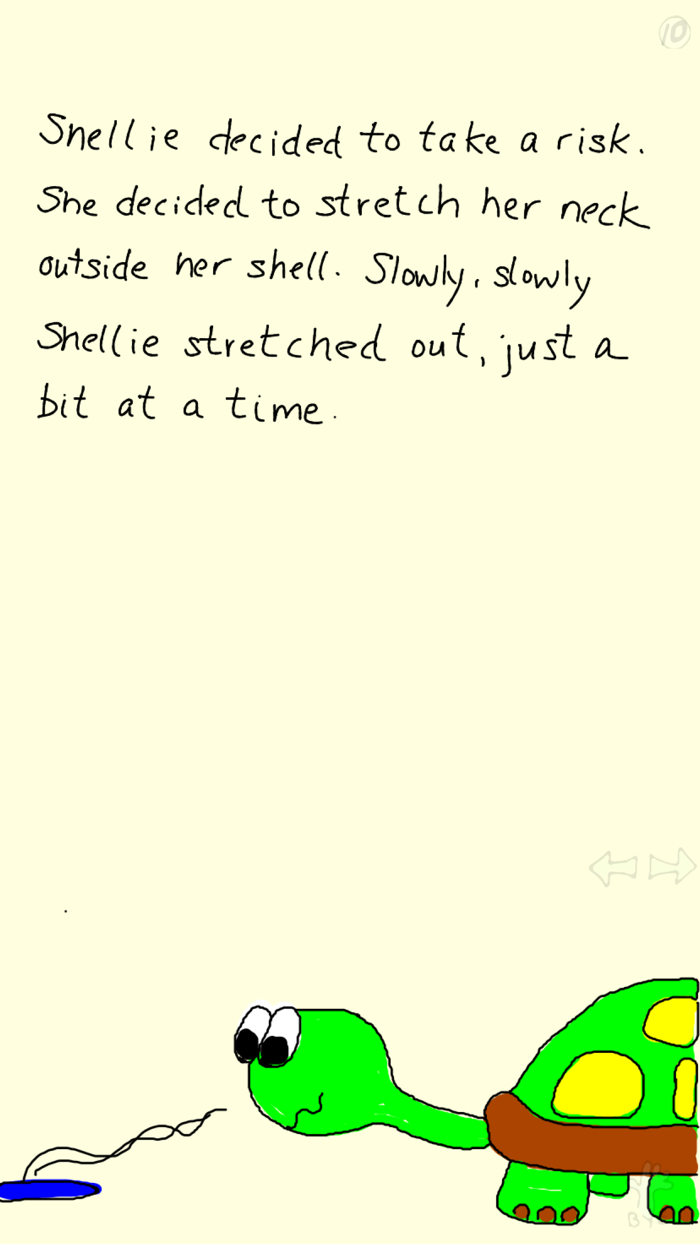 10
Shellie decided to take a risk.
She decided to stretch her neck
outside her shell. Slowly, slowly
Shellie stretched out, just a
bit at a time.